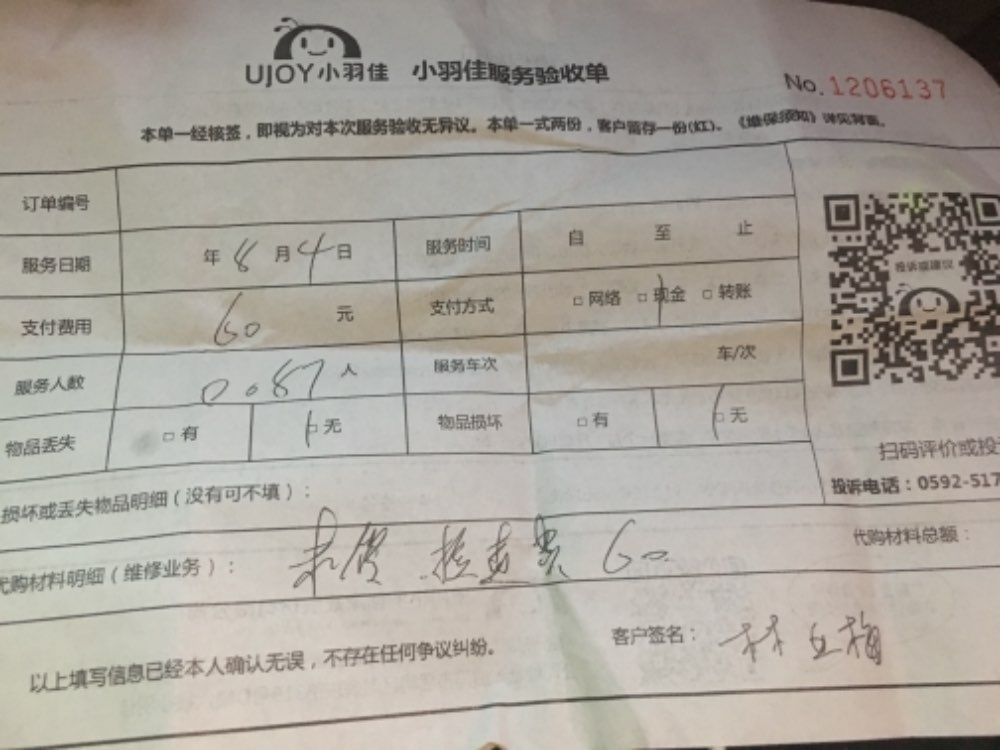 UJOY小羽佳 小羽佳服务验收单
No.1206137
本单一经核签，即视为对本次服务验收无异议。本单一式两份，客户留存一份(红)。《维保须知》详见背面。
订单编号
服务日期 年 8 月 4 日 服务时间 自 至 止
投诉或建议
支付费用 60 元 支付方式 □网络 □现金 □转账
服务人数 0.87 人 服务车次 车/次
物品丢失 □有 □无 物品损坏 □有 □无
扫码评价或投
投诉电话：0592-517
损坏或丢失物品明细（没有可不填）：
代购材料明细（维修业务）： 检查费 60 代购材料总额：
以上填写信息已经本人确认无误，不存在任何争议纠纷。 客户签名： 林 梅